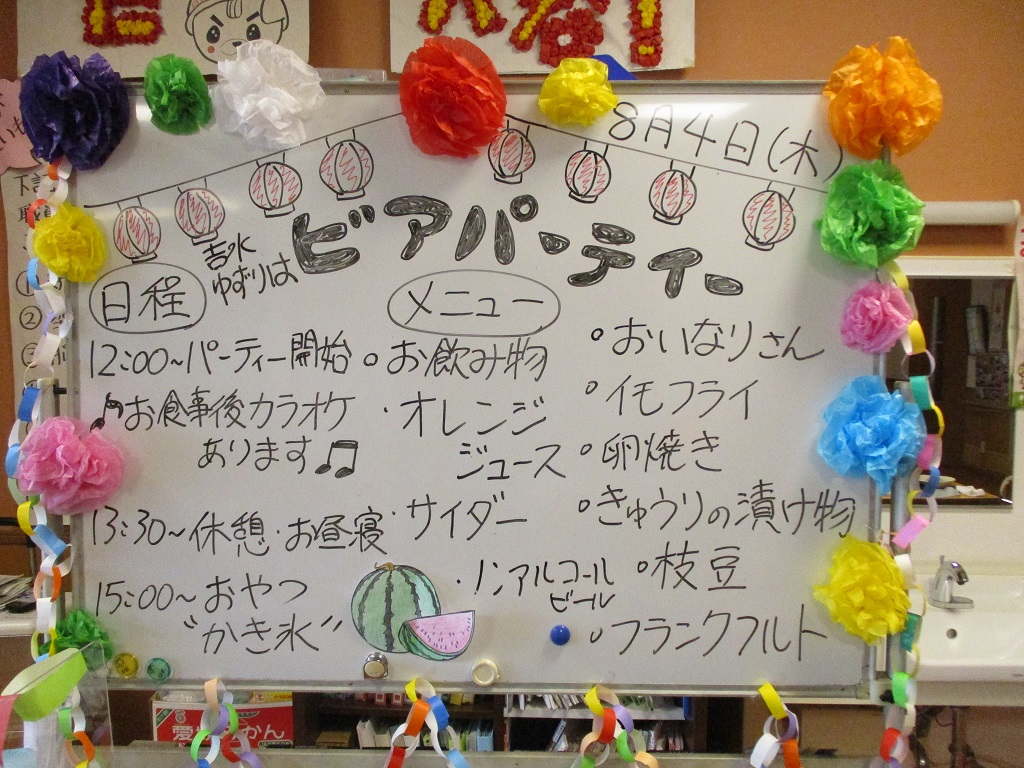 8月4日(木)
ビアパーティー
吉水
ゆずりは
日程
12:00～パーティー開始
お食事後カラオケ
あります
13:30～休憩・お昼寝
15:00～おやつ
"かき氷"
メニュー
○お飲み物
・オレンジ
ジュース
・サイダー
・ノンアルコール
ビール
○おいなりさん
○イモフライ
○卵焼き
○きゅうりの漬け物
○枝豆
○フランクフルト